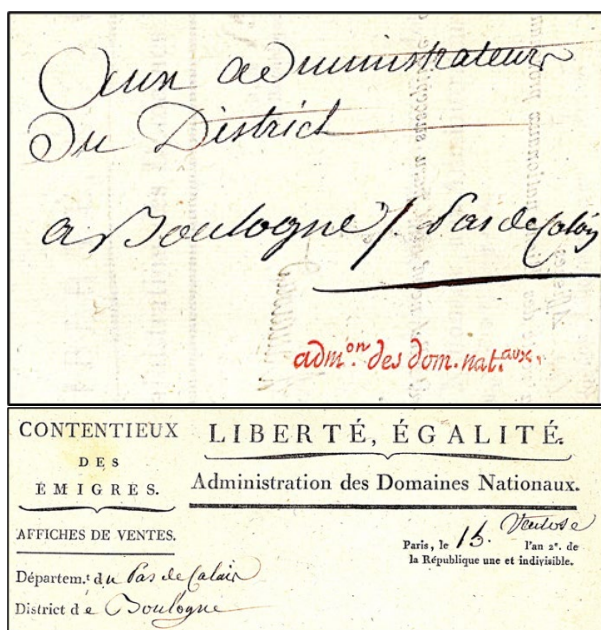 Aux administrateurs
Du District
a Boulogne / Pas de Calais
adm.on des dom. nat.aux.
CONTENTIEUX
DES
ÉMIGRÉS.
AFFICHES DE VENTES.
Départem.t du Pas de Calais
District dé Boulogne
LIBERTÉ, ÉGALITÉ.
Administration des Domaines Nationaux.
Paris, le 15. Ventose l'an 2e. de
la République une et indivisible.